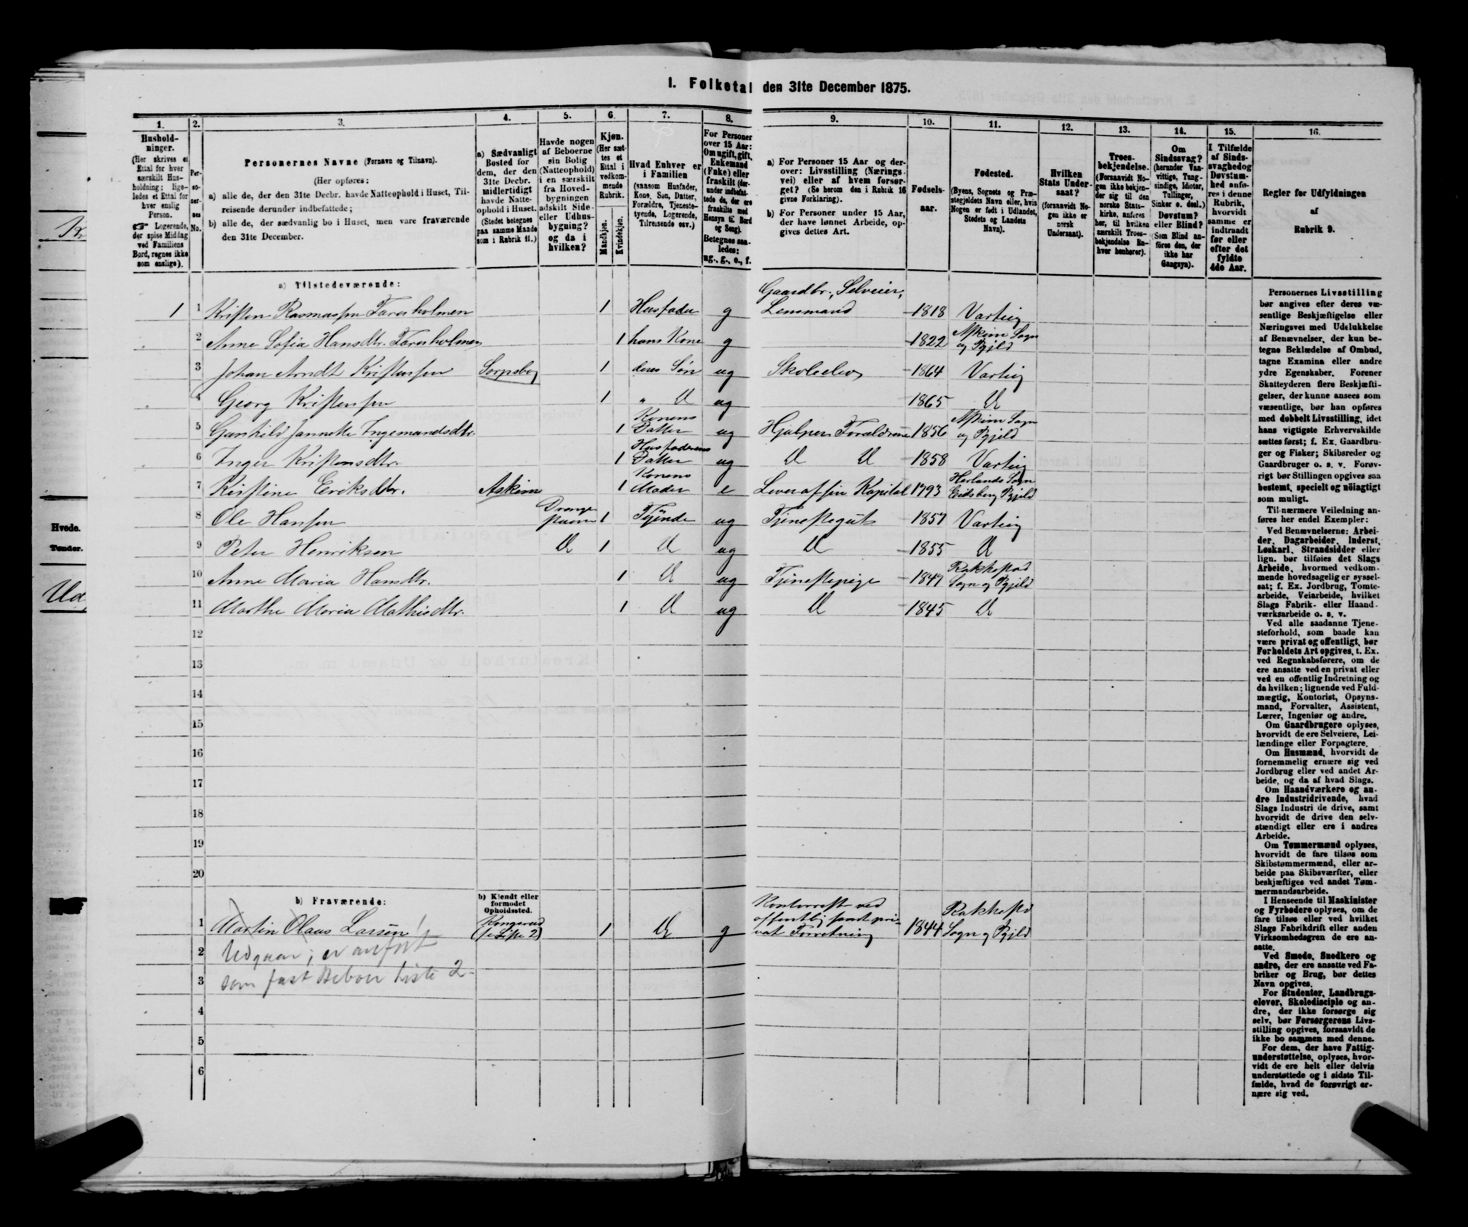 I. Folketal den 31te December 1875.
1. 2. 3. 4. 5. 6. 7. 8. 9. 10. 11. 12. 13. 14. 15. 16.
Hushold-
ninger.
(Her skrives et
Ettal for hver
særskilt Hus-
holdning; lige-
ledes et Ettal for
hver enslig
Person.
☞ Logerende,
der spise Middag
ved Familiens
Bord, regnes ikke
som enslige).
Per-
so-
ner-
nes
No.
Personernes Navne (Fornavn og Tilnavn).
(Her opføres:
a) alle de, der den 31te Decbr. havde Natteophold i Huset, Til-
reisende derunder indbefattede;
b) alle de, der sædvanlig bo i Huset, men vare fraværende
den 31te December.
a) Sædvanligt
Bosted for
dem, der den
31te Decbr.
midlertidigt
havde Natte-
ophold i Huset.
(Stedet betegnes
paa samme Maade
som i Rubrik 11.)
Havde nogen
af Beboerne
sin Bolig
(Natteophold)
i en særskilt
fra Hoved-
bygningen
adskilt Side-
eller Udhus-
bygning?
og da i
hvilken?
Kjøn.
(Her sæt-
tes et
Ettal i
vedkom-
mende
Rubrik.
Mandkjøn.
Kvindekjøn.
Hvad Enhver er
i Familien
(saasom Husfader,
Kone, Søn, Datter,
Forældre, Tjeneste-
tyende, Logerende,
Tilreisende osv.)
For Personer
over 15 Aar:
Om ugift, gift,
Enkemand
(Enke) eller
fraskilt
Betegnes saa-
ledes:
ug., g., e., f.
a) For Personer 15 Aar og der-
over: Livsstilling (Nærings-
vei) eller af hvem forsør-
get? (Se herom den i Rubrik 16
givne Forklaring).
b) For Personer under 15 Aar,
der have lønnet Arbeide, op-
gives dettes Art.
Fødsels-
aar.
Fødested.
(Byens, Sognets og Præ-
stegjeldets Navn eller, hvis
Nogen er født i Udlandet,
Stedets og Landets
Navn).
Hvilken
Stats Under-
saat?
(foraavidt No-
gen ikke er
norsk
Undersaat).
Troes-
bekjendelse.
(Foraavidt No-
gen ikke bekjen-
der sig til den
norske Stats-
kirke, anføres
her, til hvilken
særskilt Troes-
bekjendelse En-
hver henhører).
Om
Sindssvag?
(herunder Van-
vittige, Tung-
sindige, Idioter,
Tullinger,
Sinker o. desl.)
Døvstum?
eller Blind?
(Som Blind an-
føres den, der
ikke har
Gangsyn).
I Tilfælde
af Sinds-
svaghed og
Døvstum-
hed anfø-
res i denne
Rubrik,
hvorvidt
samme er
indtraadt
før eller
efter det
fyldte
4de Aar.
Regler for Udfyldningen
af
Rubrik 9.
a) Tilstedeværende:
1 1 Kristen Rasmussen Tareholmen 1 Husfader g Gaardbr., Selveier, Lensmand 1818 Varteig
2 Anne Sofia Hansdtr. Tareholmen 1 hans Kone g 1822 Askim Sogn og Pgjeld
3 Johan Arndt Kristensen Sarpsborg 1 deres Søn ug Skoleelev 1864 Varteig
4 Georg Kristensen 1 " d ug 1865 d
5 Gunhild Janneke Ingemandsdtr. 1 Konens Datter ug Hjælper Forældrene 1856 Askim Sogn og Pgjeld
6 Inger Kristensdtr. 1 Husfaderens Datter ug d d 1858 Varteig
7 Kirstine Eriksdtr. Askim 1 Konens Moder e Lever af sin Kapital 1793 Herlands Sogn Eidsberg Pgjeld
8 Ole Hansen 1 Tjende ug Tjenestegut 1857 Varteig
9 Peter Henriksen d 1 d ug d 1855 d
10 Anne Maria Hansdtr. 1 d ug Tjenestepige 1847 Rakkestad Sogn og Pgjeld
11 Marthe Maria Mathisdtr. 1 d ug d 1845 d
12
13
14
15
16
17
18
19
20
b) Fraværende:
b) Kjendt eller
formodet
Opholdssted.
1 Martin Olaus Larsen Kongerud (se Liste 2) 1 d g Kontorist ved offentlig samt privat Forretning 1844 Rakkestad Sogn og Pgjeld
2 Udgaar; er anført
3 som fast Beboer Liste 2
4
5
6
Personernes Livsstilling
bør angives efter deres væ-
sentlige Beskjæftigelse eller
Næringsvei med Udelukkelse
af Benævnelser, der kun be-
tegne Beklædelse af Ombud,
tagne Examina eller andre
ydre Egenskaber. Forener
Skatteyderen flere Beskjæfti-
gelser, der kunne ansees som
væsentlige, bør han opføres
med dobbelt Livsstilling, idet
hans vigtigste Erhvervskilde
sættes først; f. Ex. Gaardbru-
ger og Fisker; Skibsreder og
Gaardbruger o. s. v. Forøv-
rigt bør Stillingen opgives saa
bestemt, specielt og nøiagtigt
som muligt.
Til nærmere Veiledning an-
føres her endel Exempler:
Ved Benævnelserne: Arbei-
der, Dagarbeider, Inderst,
Løskarl, Strandsidder eller
lign. bør tilføies det Slags
Arbeide, hvormed vedkom-
mende hovedsagelig er syssel-
sat; f. Ex. Jordbrug, Tomte-
arbeide, Veiarbeide, hvilket
Slags Fabrik- eller Haand-
værksarbeide o. s. v.
Ved alle saadanne Tjene-
steforhold, som baade kan
være privat og offentligt, bør
Forholdets Art opgives, t. Ex.
ved Regnskabsførere, om de
ere ansatte ved en privat eller
ved en offentlig Indretning og
da hvilken; lignende ved Fuld-
mægtig, Kontorist, Opsyns-
mand, Forvalter, Assistent,
Lærer, Ingeniør og andre.
Om Gaardbrugere oplyses,
hvorvidt de ere Selveiere, Lei-
lændinge eller Forpagtere.
Om Husmænd, hvorvidt de
fornemmelig ernære sig ved
Jordbrug eller ved andet Ar-
beide, og da af hvad Slags.
Om Haandværkere og an-
dre Industridrivende, hvad
Slags Industri de drive, samt
hvorvidt de drive den selv-
stændigt eller ere i andres
Arbeide.
Om Tømmermænd oplyses,
hvorvidt de fare tilsøs som
Skibstømmermænd, eller ar-
beide paa Skibsværfter, eller
beskjæftiges ved andet Tøm-
mermandsarbeide.
I Henseende til Maskinister
og Fyrbødere oplyses, om de
fare tilsøs eller ved hvilket
Slags Fabrikdrift eller anden
Virksomhedsgren de ere an-
satte.
Ved Smede, Snedkere og
andre, der ere ansatte ved Fa-
briker og Brug, bør dettes
Navn opgives.
For Studenter, Landbrugs-
elever, Skoledisciple og an-
dre, der ikke forsørge sig
selv, bør Forsørgerens Livs-
stilling opgives, forsaavidt de
ikke bo sammen med denne.
For dem, der have Fattig-
understøttelse, oplyses, hvor-
vidt de ere helt eller delvis
understøttede og i sidste Til-
fælde, hvad de forøvrigt er-
nære sig ved.
Hvede.
Tønder.